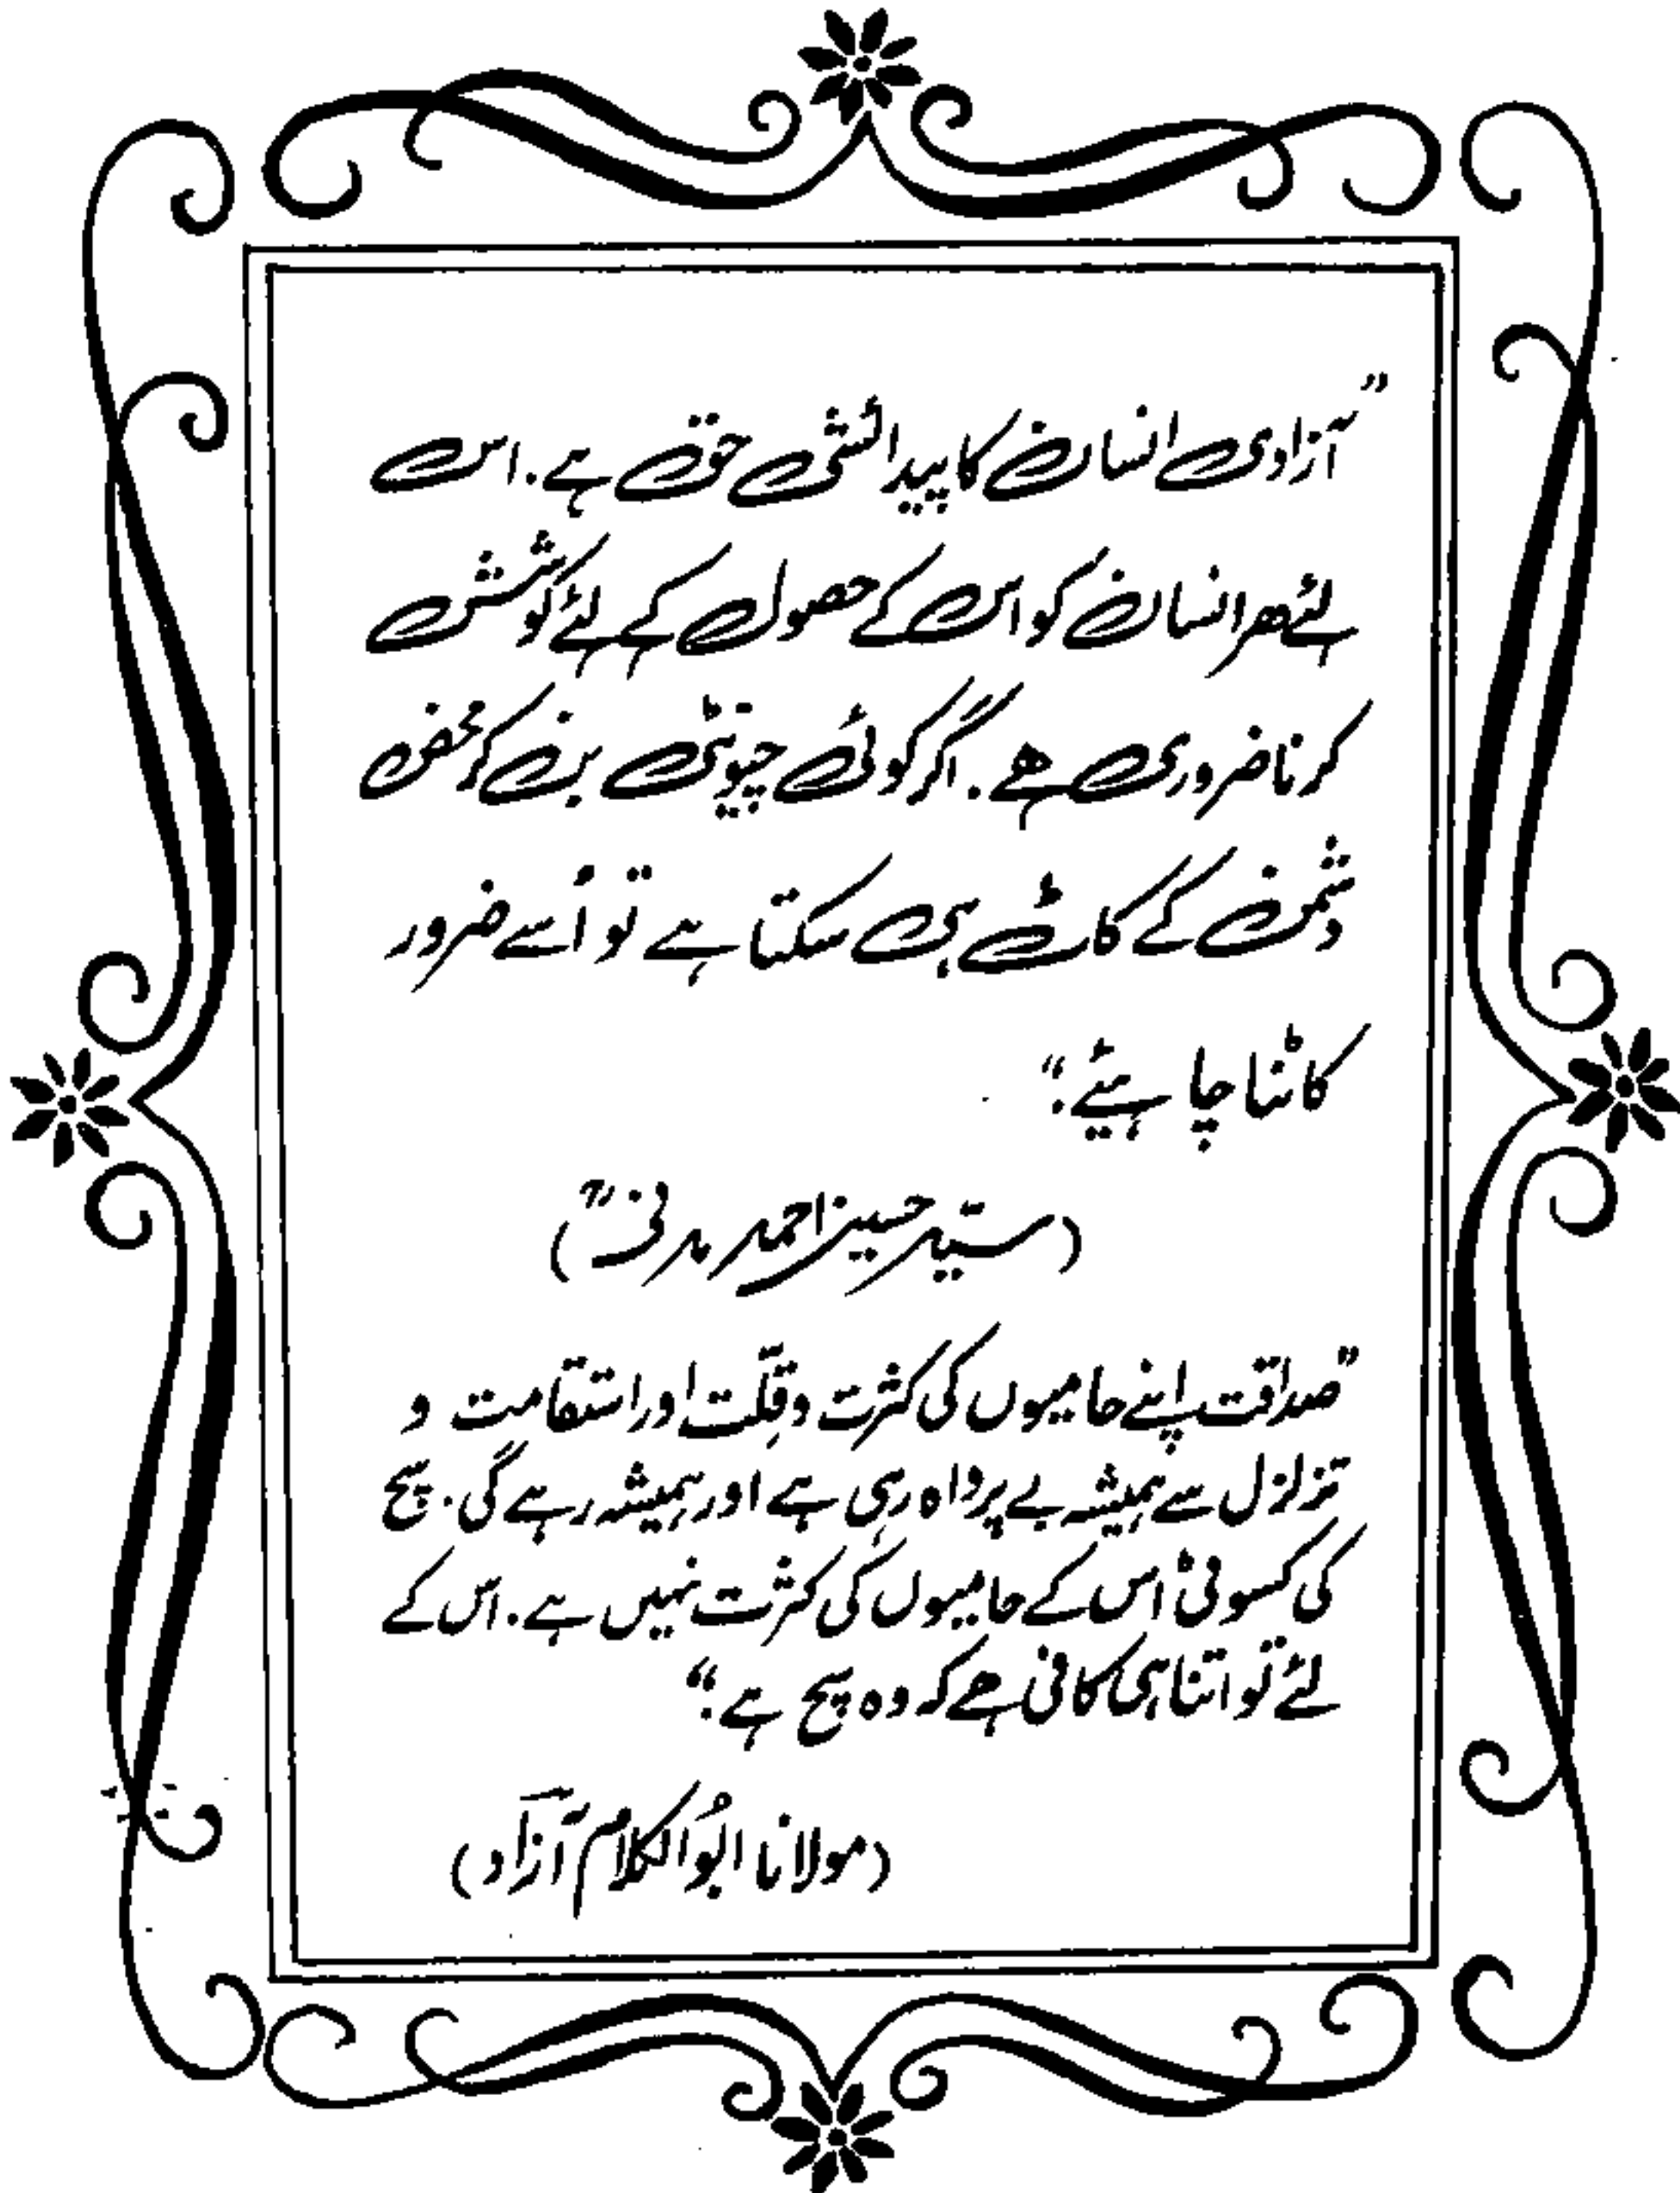 ”آزادی انسان کا پیدائشی حق ہے. اس
لئے ہر انسان کو اس کے حصول کے لئے کوشش
کرنا ضروری ہے. اگر کوئی چیونٹی بن کر محض
دشمن کے کاٹ ہی سکتا ہے تو اُسے ضرور
کاٹنا چاہیئے.“
(سیّد حسین احمد مدنی ؒ)
”صداقت اپنے حامیوں کی کثرت و قِلّت اور استقامت و
تزلزل سے ہمیشہ بے پرواہ رہی ہے اور ہمیشہ رہے گی. سچ
کی کسوٹی اس کے حامیوں کی کثرت نہیں ہے. اس کے
لئے تو اتنا ہی کافی ہے کہ وہ سچ ہے.“
(مولانا ابُوالکلام آزاد)